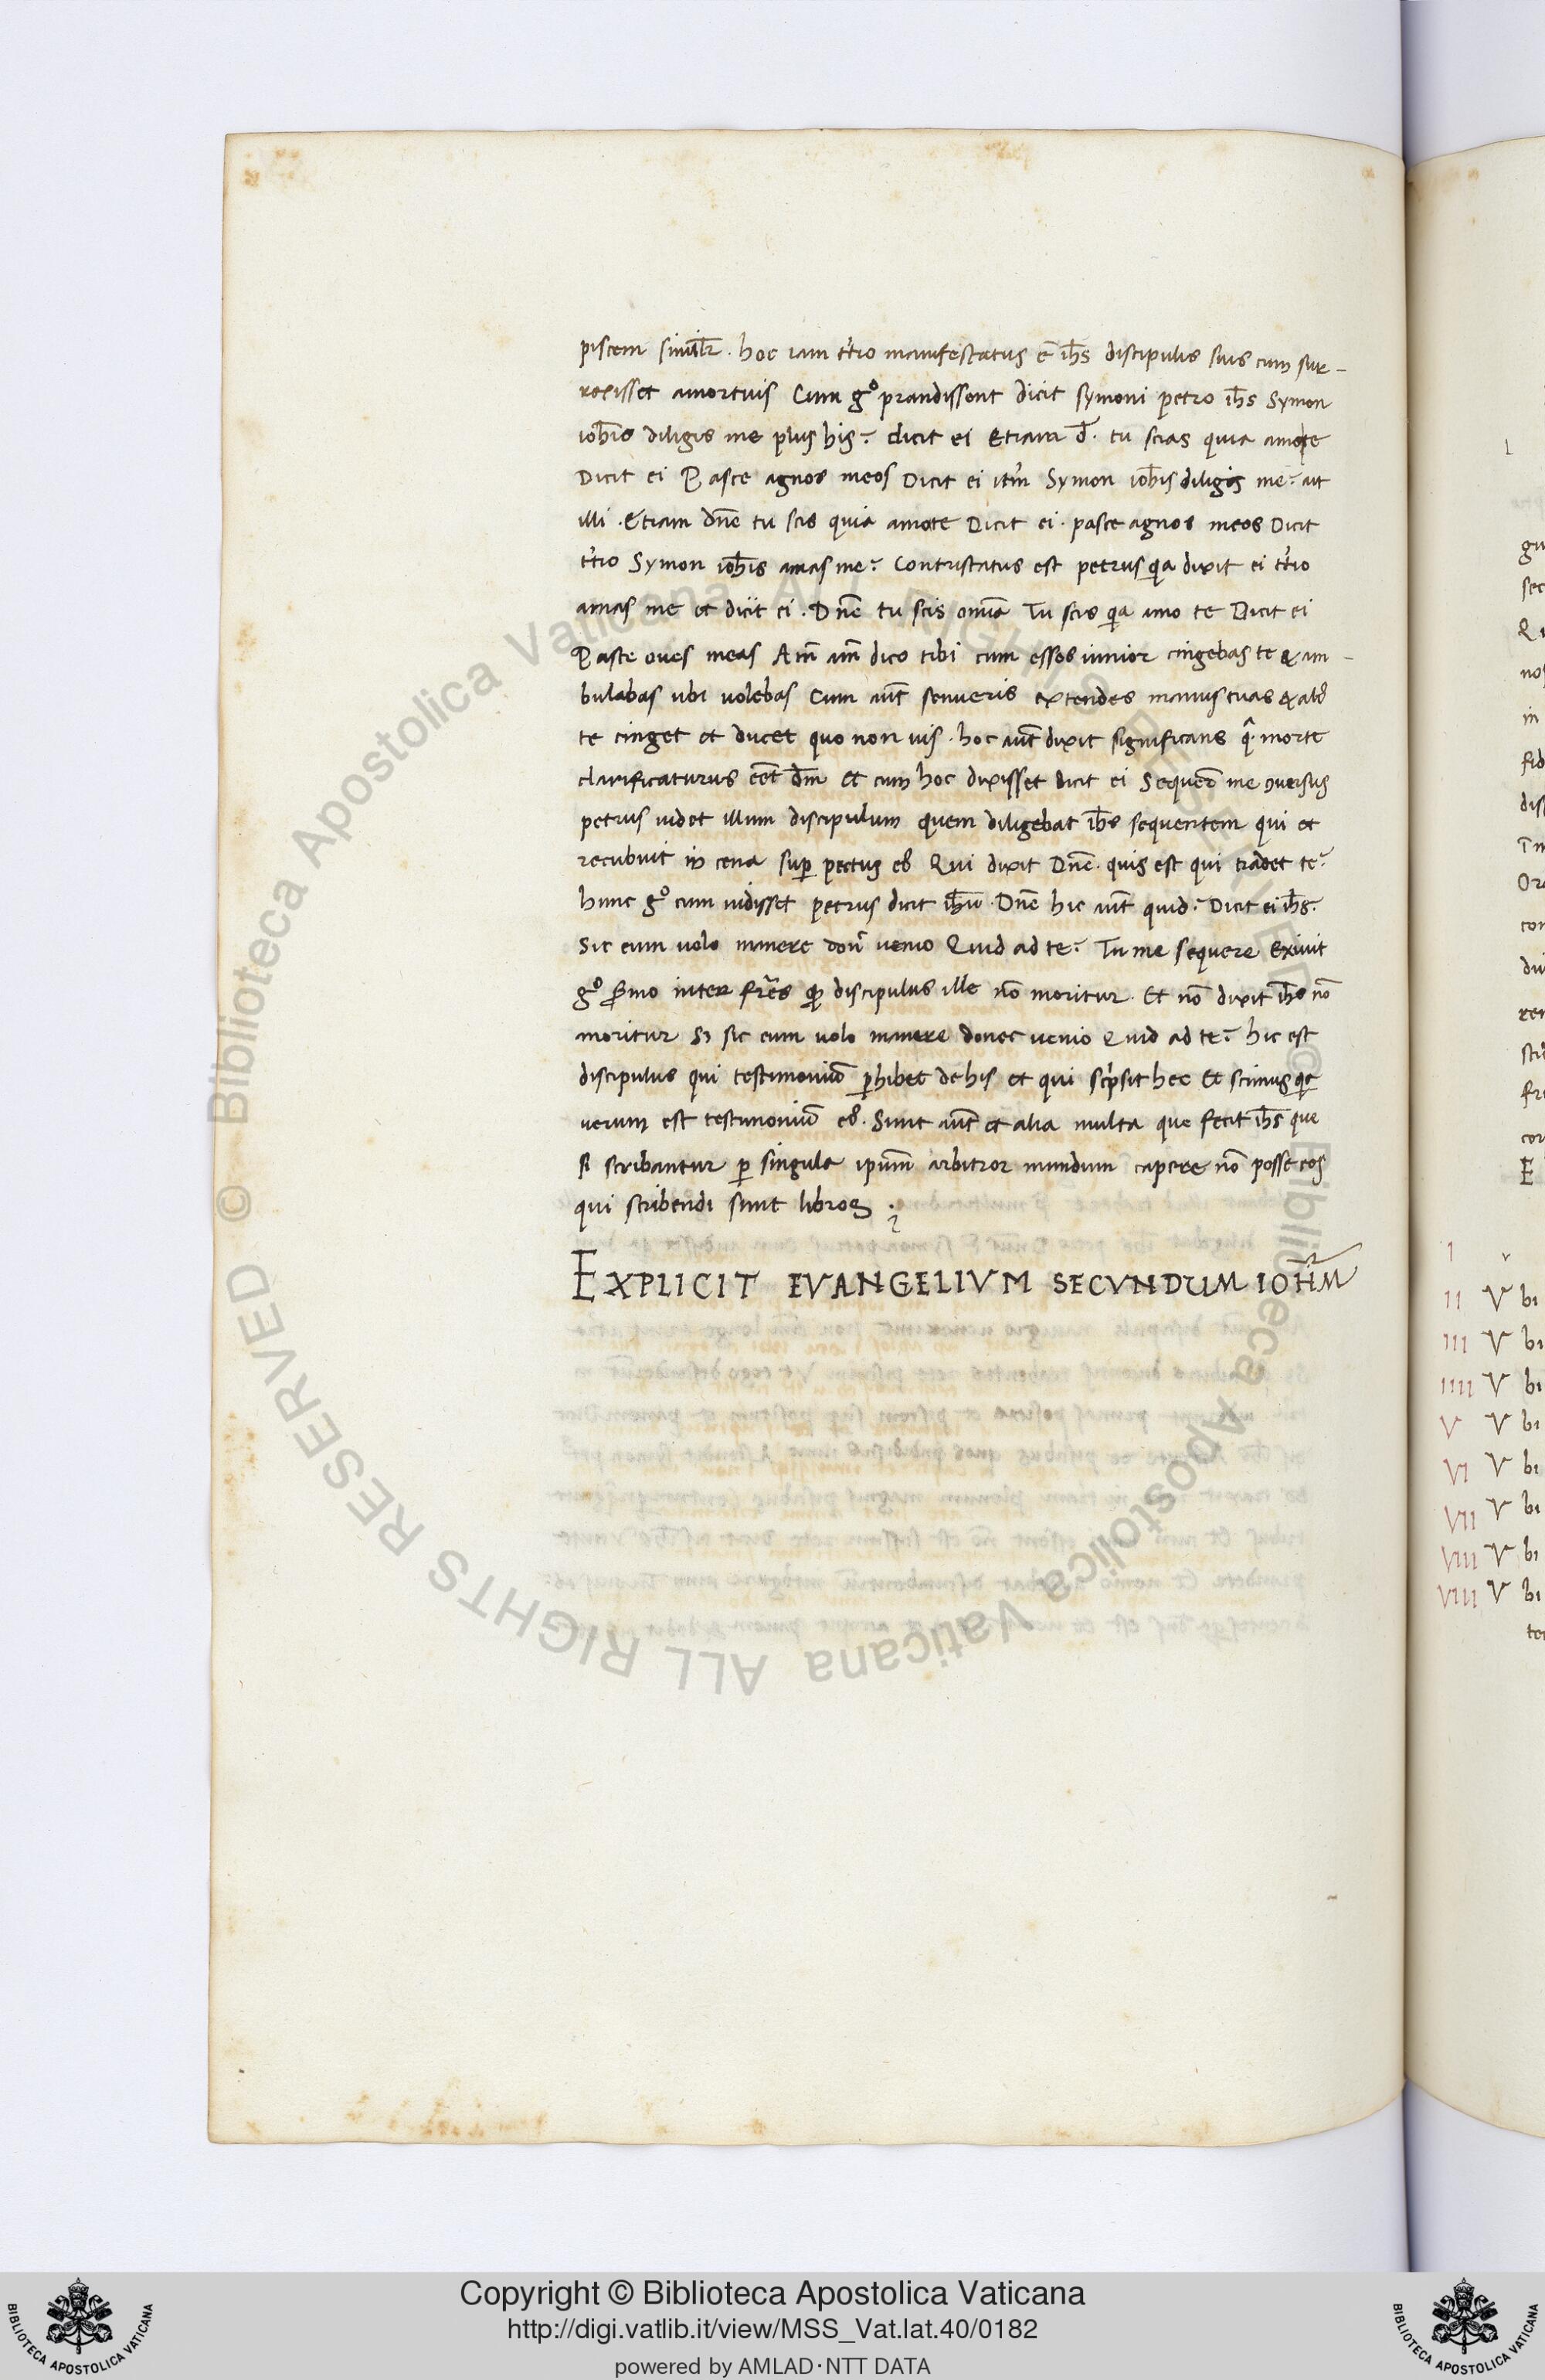 piscem similr̄. hoc iam tr̄io manifestatus ē ih̄s discipulis suis cum sur-
rexisset amortuis Cum gº prandissent dicit symoni petro ih̄s Symon
ioh̄is diligis me plus his? dicit ei Etiam d̄. tu scias quia amote
Dicit ei Pasce agnos meos Dicit ei itm̄ Symon ioh̄is diligis me? ait
illi. Etiam dn̄e tu scis quia amote Dicit ei. pasce agnos meos Dicit
tr̄io Symon ioh̄is amas me? Contristatus est petrus qia dixit ei tr̄io
amas me et dicit ei. Dn̄e tu scis om̄ia Tu scis qia amo te Dicit ei
Pasce oues meas Am̄ am̄ dico tibi cum esses iunior cingebas te & am-
bulabas ubi uolebas Cum aut̄ senueris extendes manus tuas & ali9
te cinget et ducet quo non uis. hoc aut̄ dixit significans q̄. morte
clarificaturus eēt dm̄ Et cum hoc dixisset dicit ei Sequer̄ me ꝯuersus
petrus uidet illum discipulum quem diligebat ih̄s sequentem qui et
recubuit in cena suꝑ pectus ei9 Qui dixit Dn̄e. quis est qui tradet te?
hunc gº cum uidisset petrus dicit ih̄u. Dn̄e hic aut̄ quid? Dicit ei ih̄s.
Sic eum uolo manere don̄ uenio Quid ad te? Tu me sequere Exiuit
gº s̄mo inter fr̄es qi discipulus ille nō moritur. Et nō dixit ih̄s nō
moritur S3 sic eum uolo manere donec uenio Quid ad te? hic est
discipulus qui testimoniū ꝑhibet de his et qui scp̄sit hec Et scimus qa
uerum est testimoniū ei9. Sunt aut̄ et alia multa que fecit ih̄s que
si scribantur ꝑ singula ipsum̄ arbitror mundum capere nō posse eos
qui scribendi sunt libros.
EXPLICIT EVANGELIVM SECVNDUM IOH̄M
I
II V bi
III V bi
IIII V bi
V V bi
VI V bi
VII V bi
VIII V bi
VIIII V bi
© Biblioteca Apostolica Vaticana ALL RIGHTS RESERVED © Biblioteca Apostolica Vaticana ALL RIGHTS RESERVED
Copyright © Biblioteca Apostolica Vaticana
http://digi.vatlib.it/view/MSS_Vat.lat.40/0182
powered by AMLAD·NTT DATA
BIBLIOTECA APOSTOLICA VATICANA
BIBLIOTECA APOSTOLICA VATICANA